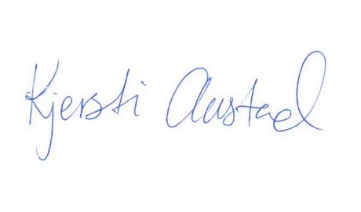 Kjersti Austad